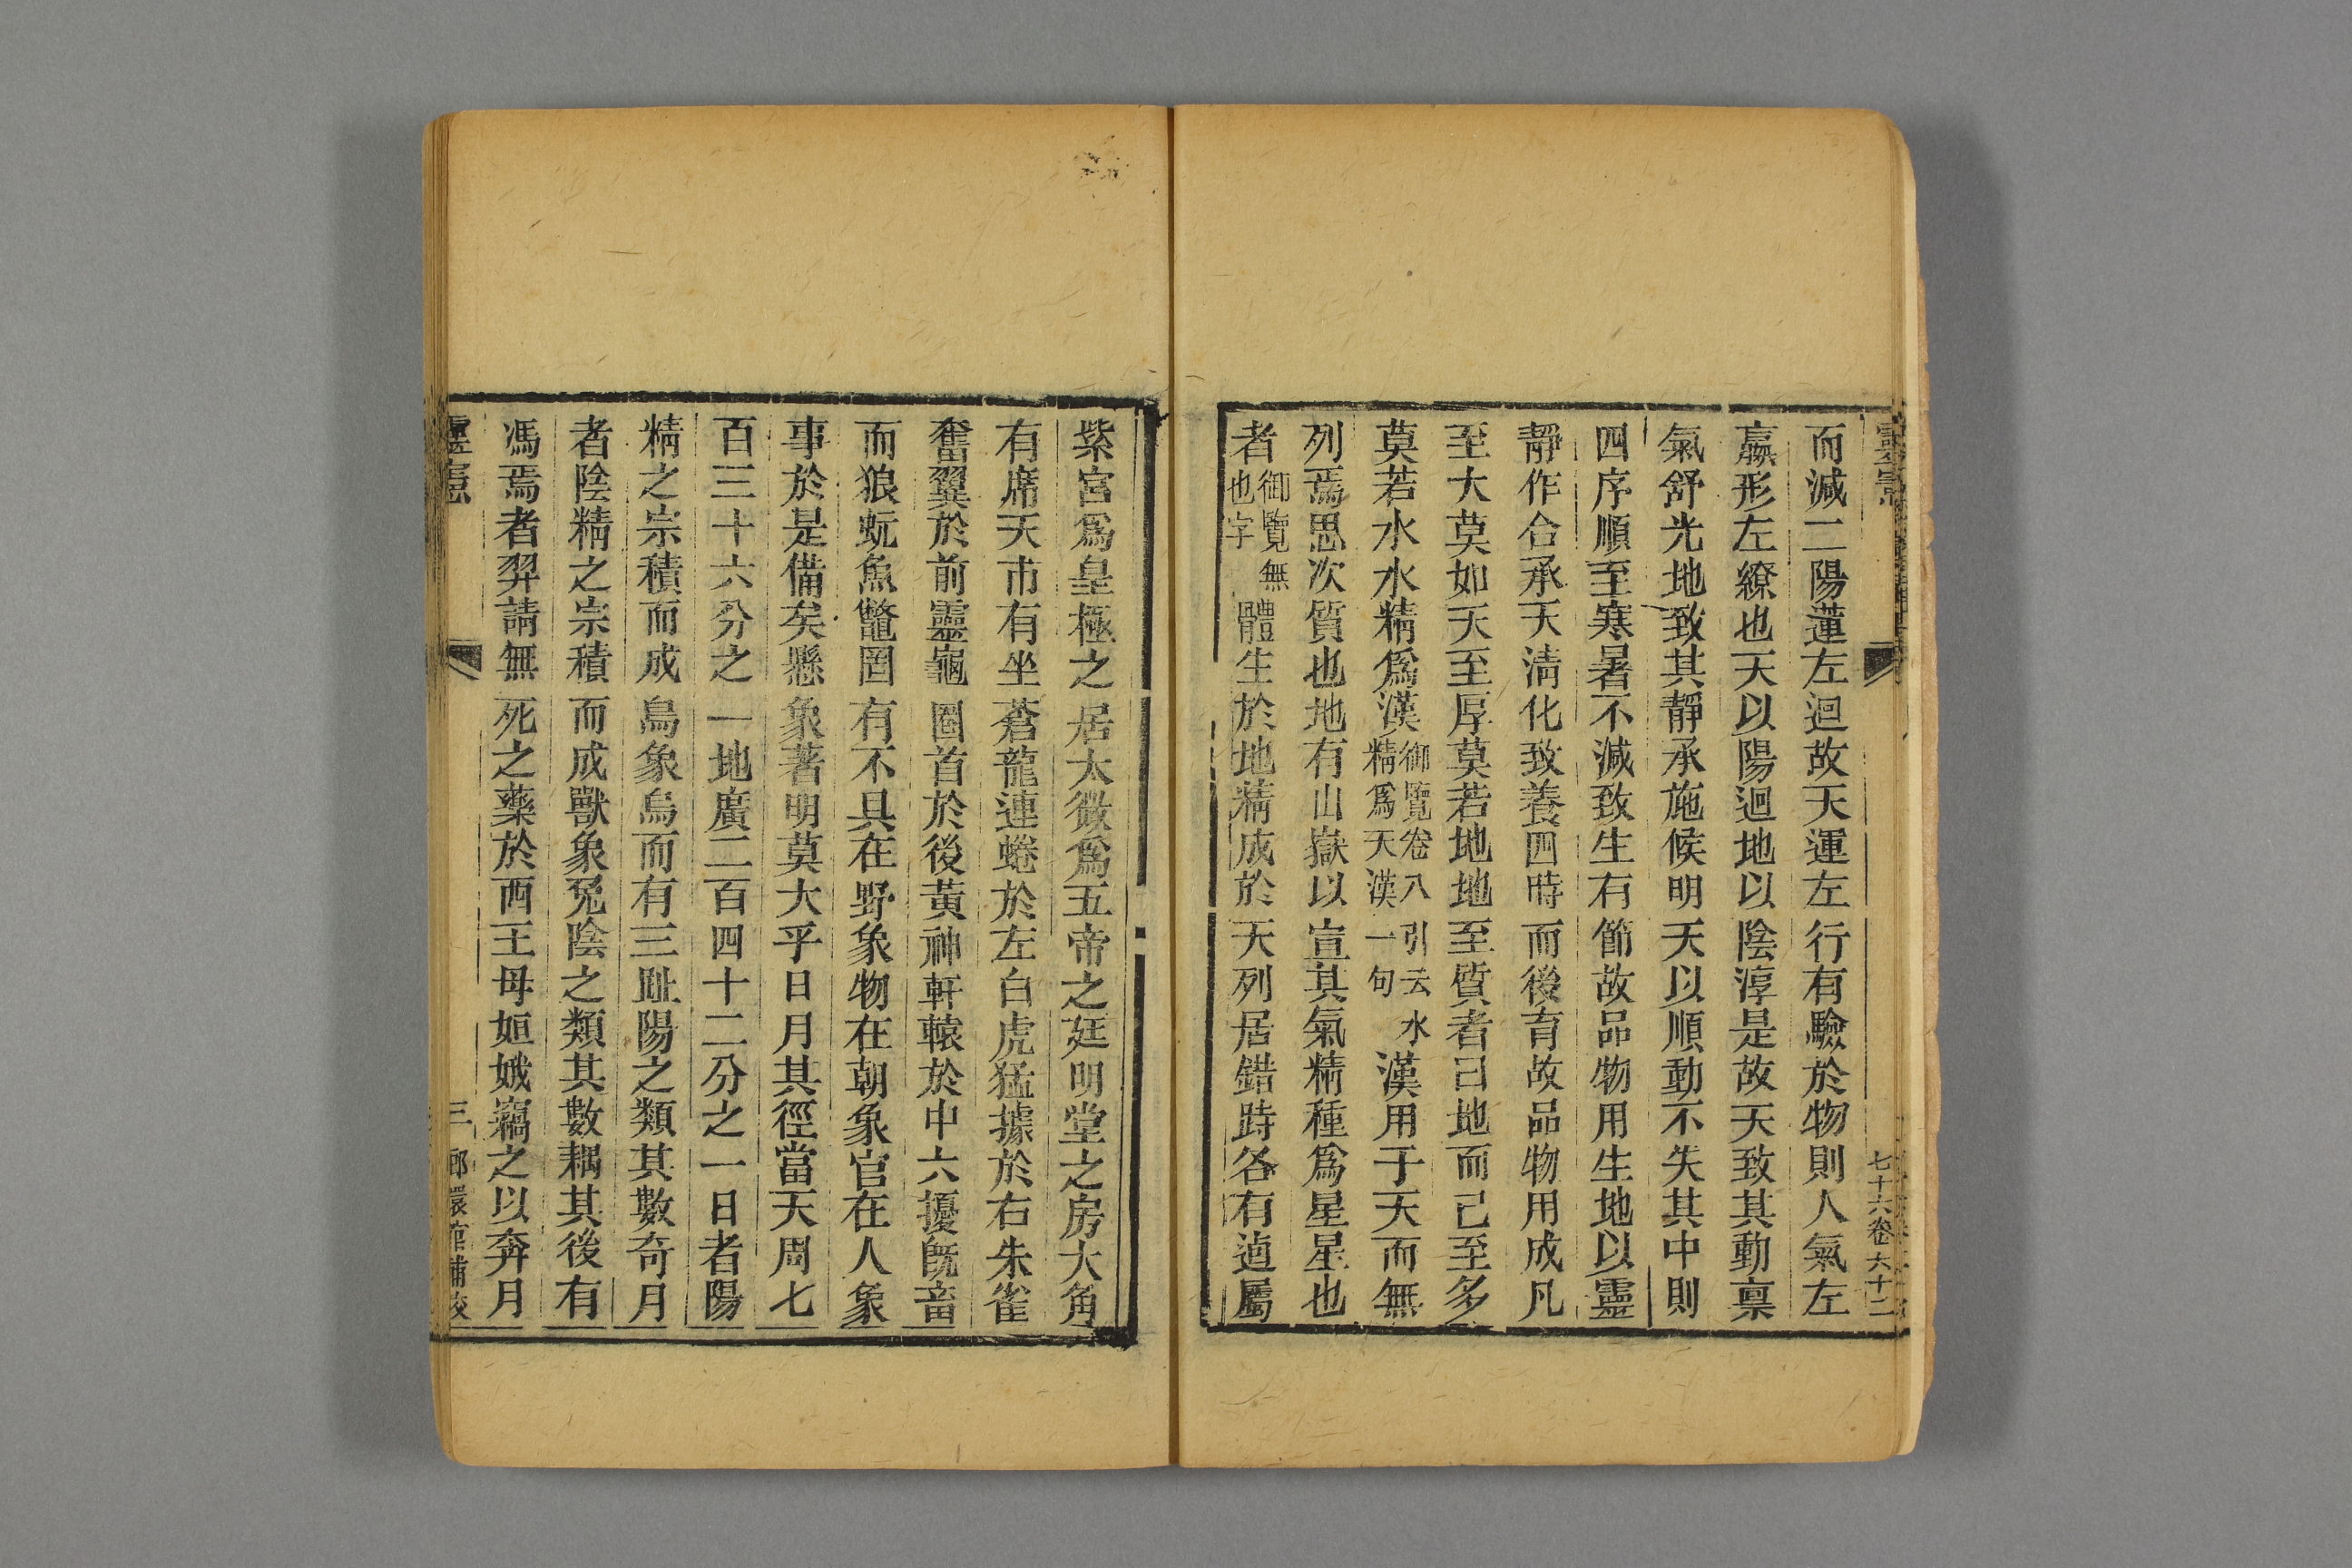 靈憲
七十六卷六十二
而減二陽蓮左迴故天運左行有驗於物則人氣左
羸形左繚也天以陽迴地以陰淳是故天致其動稟
氣舒光地致其靜承施候明天以順動不失其中則
四序順至寒暑不減致生有節故品物用生地以靈
靜作合承天清化致養四時而後育故品物用成凡
至大莫如天至厚莫若地地至質者曰地而己至多
莫若水水精爲漢御覽卷八引云水精爲天漢一句漢用于天而無
列焉思次質也地有山嶽以宣其氣精種爲星星也
者御覽無也字體生於地精成於天列居錯跱各有逌屬
紫宮爲皇極之居太微爲五帝之廷明堂之房大角
有席天市有坐蒼龍連蜷於左白虎猛據於右朱雀
奮翼於前靈龜圈首於後黃神軒轅於中六擾旣畜
而狼蚖魚鼈罔有不具在野象物在朝象官在人象
事於是備矣懸象著明莫大乎日月其徑當天周七
百三十六分之一地廣二百四十二分之一日者陽
精之宗積而成烏象烏而有三趾陽之類其數奇月
者陰精之宗積而成獸象兔陰之類其數耦其後有
馮焉者羿請無死之藥於西王母姮娥竊之以奔月
靈憲
三